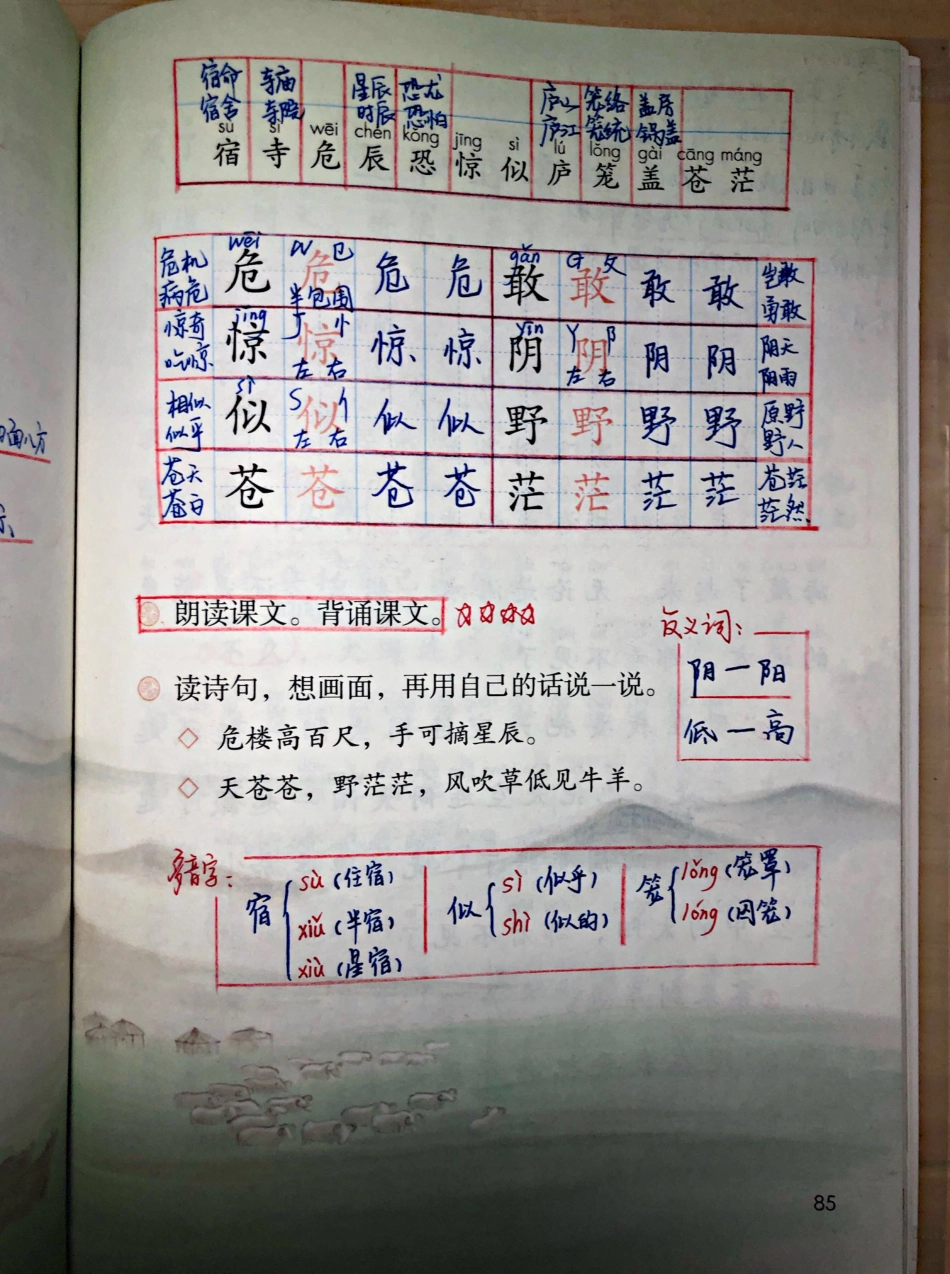 宿命 寺庙 星辰 恐龙 庐山 笼络 盖房
宿舍 寺院 时辰 恐怕 庐江 笼统 锅盖
sù sì wēi chén kǒng jīng sì lú lǒng gài cāng máng
宿 寺 危 辰 恐 惊 似 庐 笼 盖 苍 茫
wēi W 㔾 gǎn G 攵
危机 危 危 危 危 敢 敢 敢 敢 岂敢
病危 半包围 勇敢
jīng J 忄 yīn Y 阝
惊奇 惊 惊 惊 惊 阴 阴 阴 阴 阴天
吃惊 左右 左右 阴雨
sì S 亻
相似 似 似 似 似 野 野 野 野 原野
似乎 左右 野人
苍天 苍 苍 苍 苍 茫 茫 茫 茫 苍茫
苍白 茫然
面八方
朗读课文。背诵课文。☆☆☆☆
反义词：
阴—阳
读诗句，想画面，再用自己的话说一说。
低—高
◇ 危楼高百尺，手可摘星辰。
◇ 天苍苍，野茫茫，风吹草低见牛羊。
多音字：
宿 sù（住宿） xiǔ（半宿） xiù（星宿）
似 sì（似乎） shì（似的）
笼 lǒng（笼罩） lóng（囚笼）
85